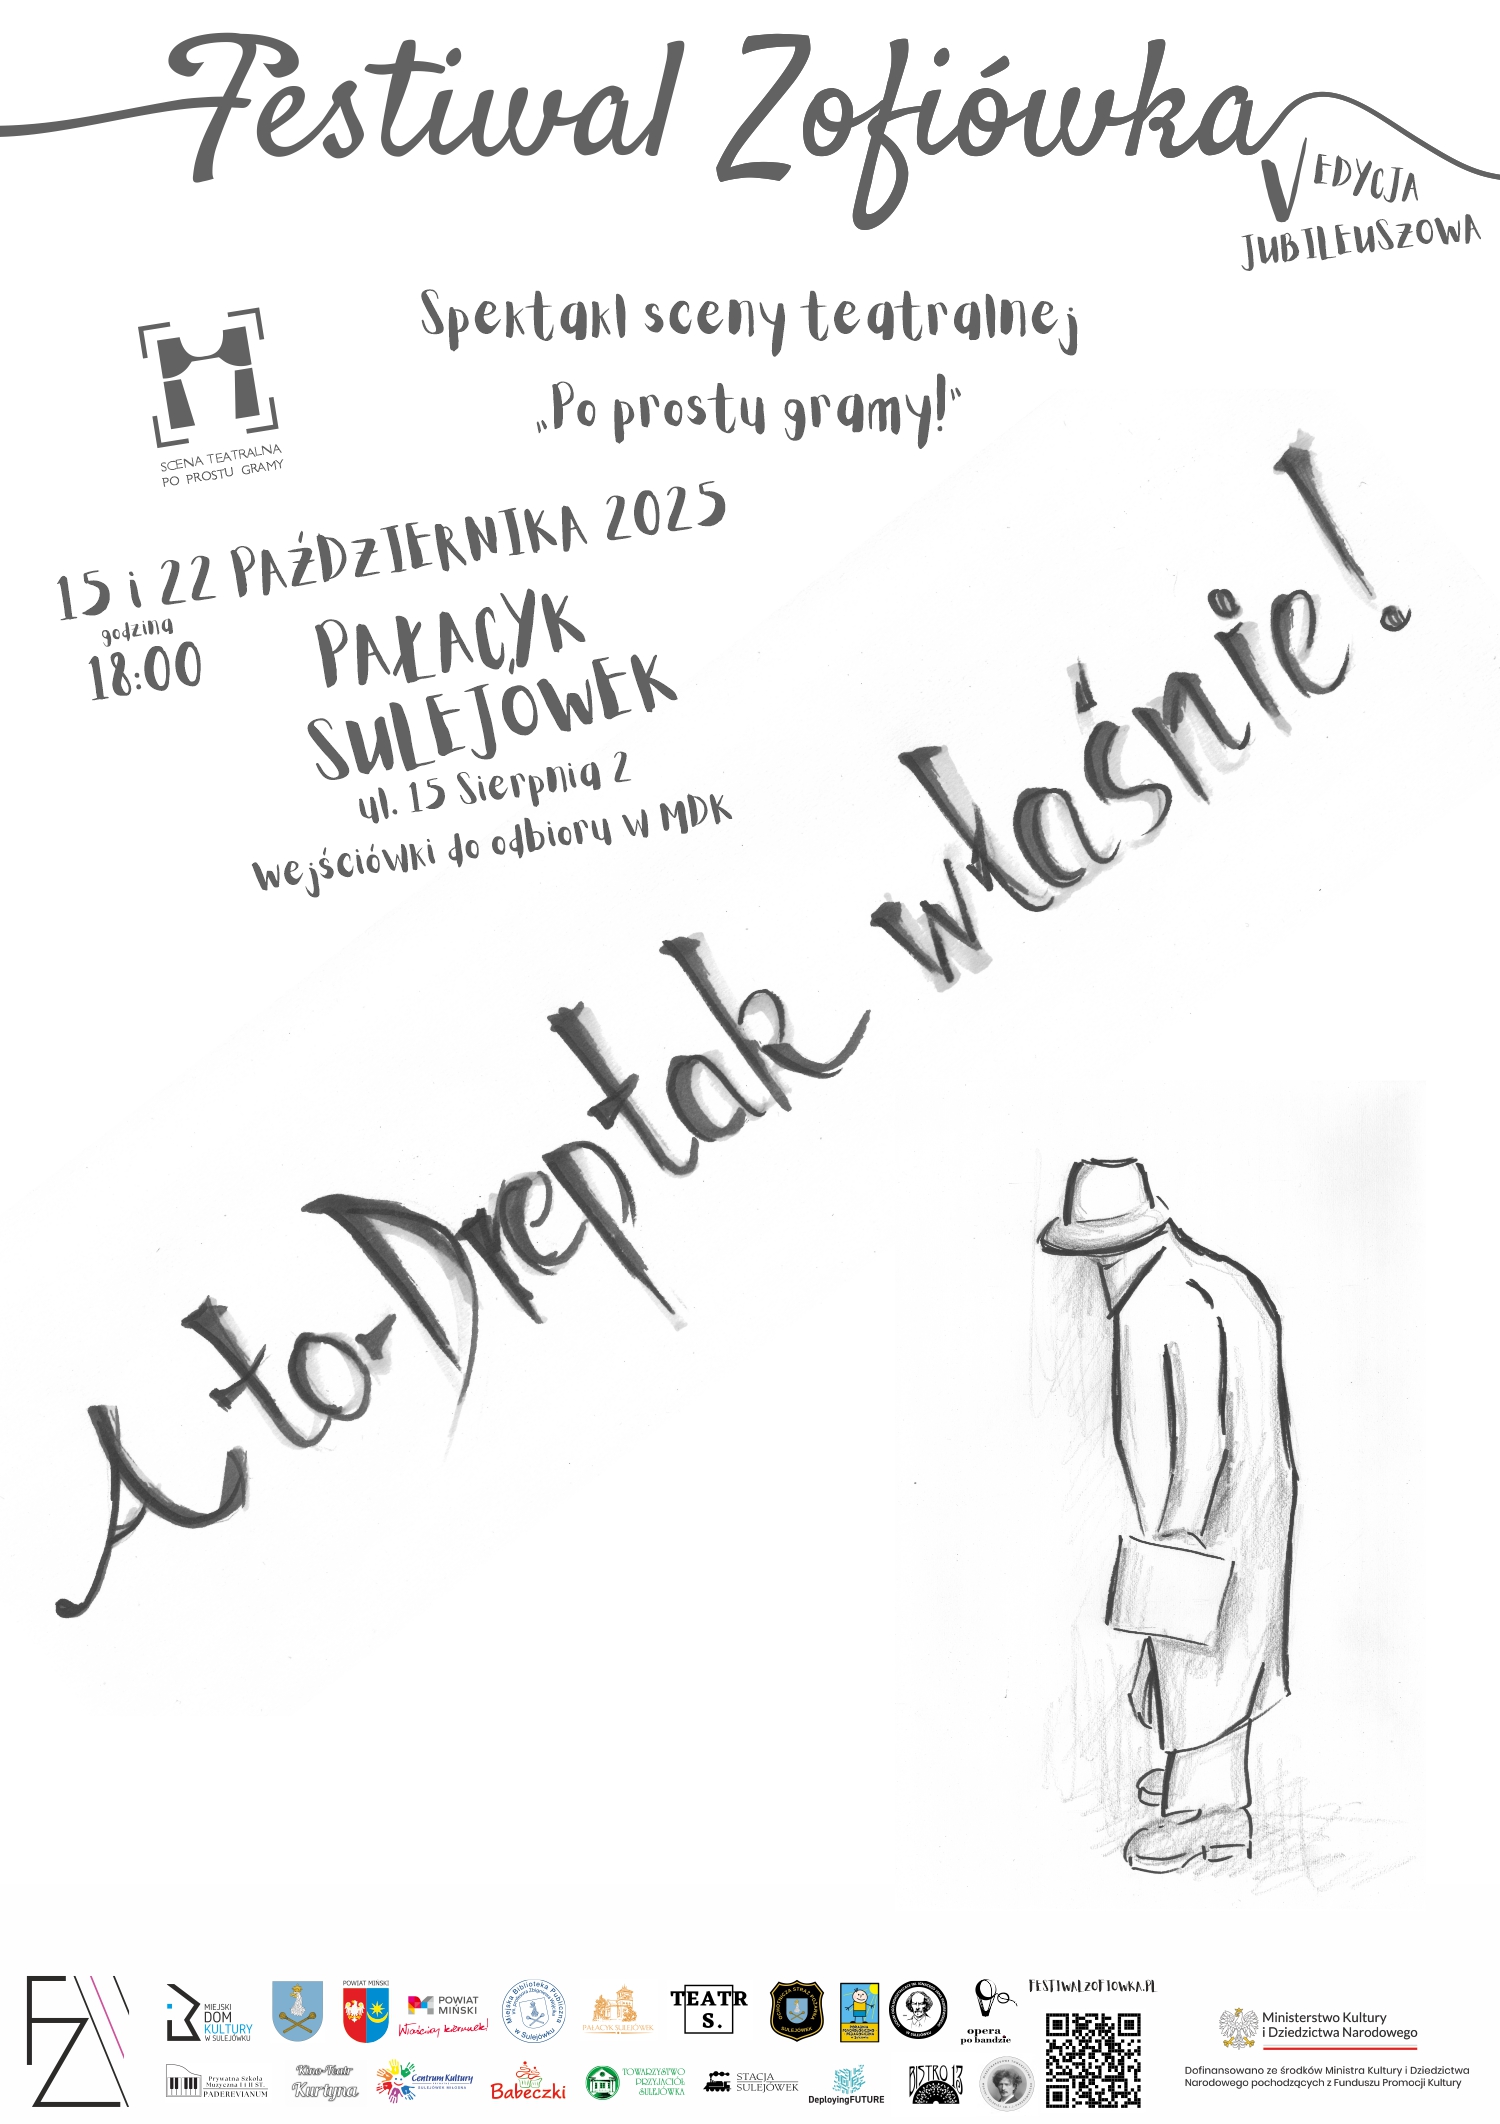 Festiwal Zofiówka
V EDYCJA
JUBILEUSZOWA
Spektakl sceny teatralnej
„Po prostu gramy!”
SCENA TEATRALNA
PO PROSTU GRAMY
15 i 22 PAŹDZIERNIKA 2025
godzina
18:00
PAŁACYK
SULEJÓWEK
ul. 15 Sierpnia 2
wejściówki do odbioru w MDK
A to-Dreptak właśnie!
FZ
MIEJSKI
DOM
KULTURY
W SULEJÓWKU
POWIAT MIŃSKI
POWIAT
MIŃSKI
Właściwy kierunek!
Miejska Biblioteka Publiczna
w Sulejówku
PAŁACYK SULEJÓWEK
TEATR
S.
OCHOTNICZA STRAŻ POŻARNA
SULEJÓWEK
opera
po bandzie
FESTIWALZOFIOWKA.PL
Ministerstwo Kultury
i Dziedzictwa Narodowego
Dofinansowano ze środków Ministra Kultury i Dziedzictwa
Narodowego pochodzących z Funduszu Promocji Kultury
Prywatna Szkoła
Muzyczna I i II ST.
PADEREVIANUM
Kino-Teatr
Kurtyna
Centrum Kultury
SULEJÓWEK MIŁOSNA
Babeczki
TOWARZYSTWO
PRZYJACIÓŁ
SULEJÓWKA
STACJA
SULEJÓWEK
DeployingFUTURE
BISTRO 13